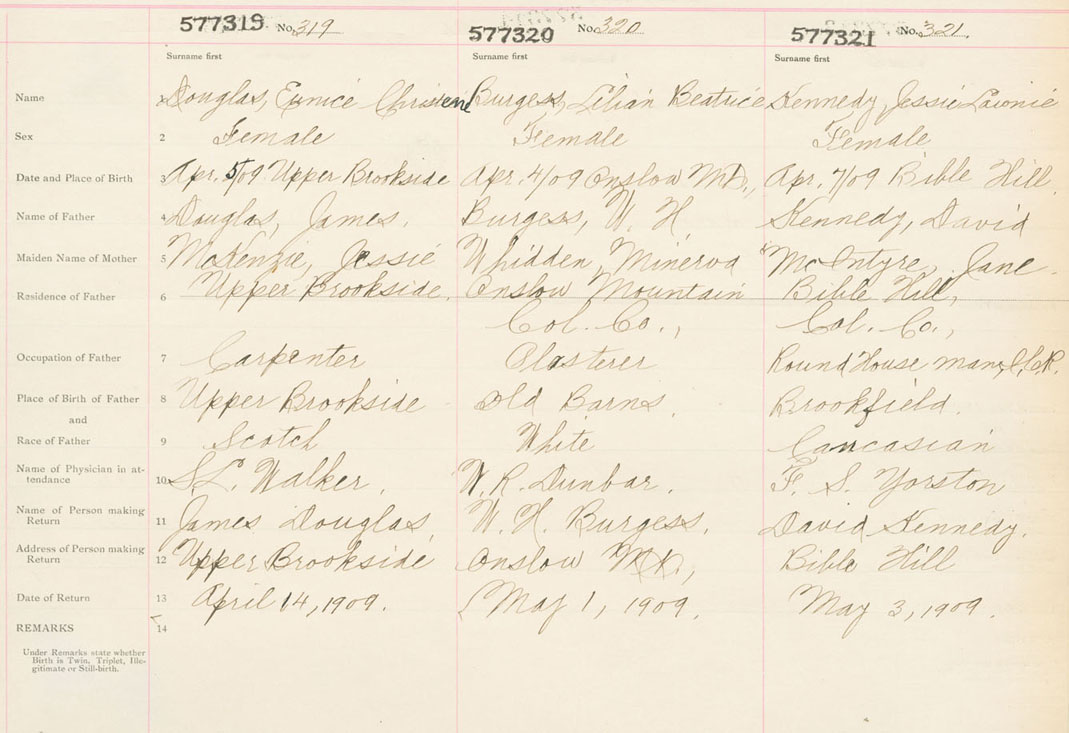 577319 No. 319 577320 No. 320 577321 No. 321.
Surname first Surname first Surname first
Name 1 Douglas, Eunice Christene Burgess, Lilian Beatrice Kennedy, Jessie
Sex 2 Female Female Female
Date and Place of Birth 3 Apr. 5/09 Upper Brookside Apr. 4/09 Onslow Mt., Apr. 7/09 Bible Hill.
Name of Father 4 Douglas, James. Burgess, W. H. Kennedy, David
Maiden Name of Mother 5 McKenzie, Jessie Whidden, Minerva McIntyre, Jane.
Residence of Father 6 Upper Brookside. Onslow Mountain Bible Hill,
Col. Co., Col. Co.,
Occupation of Father 7 Carpenter Plasterer Round House man, I.C.R.
Place of Birth of Father 8 Upper Brookside Old Barns. Brookfield.
and
Race of Father 9 Scotch White Caucasian
Name of Physician in at-
tendance 10 S. L. Walker. W. R. Dunbar. F. S. Yorston
Name of Person making
Return 11 James Douglas W. H. Burgess. David Kennedy.
Address of Person making
Return 12 Upper Brookside Onslow Mt., Bible Hill
Date of Return 13 April 14, 1909. May 1, 1909. May 3, 1909.
REMARKS 14
Under Remarks state whether
Birth is Twin, Triplet, Ille-
gitimate or Still-birth.